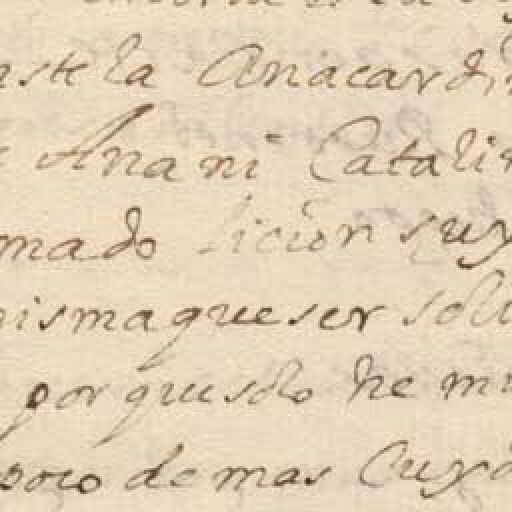 nstela Anacardi
Ana ni Catali
mado licion suy
misma que ser sol
por que solo he m
poco demas Cuy